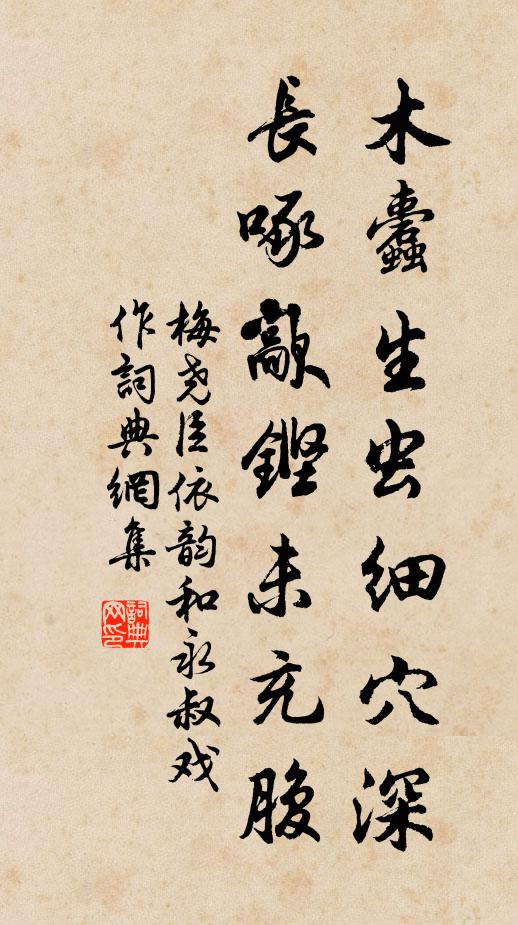 木蠹生虫细穴深
長啄敲鏗未充腹
梅尧臣依韵和永叔戏
作詞典網集
詞典网印